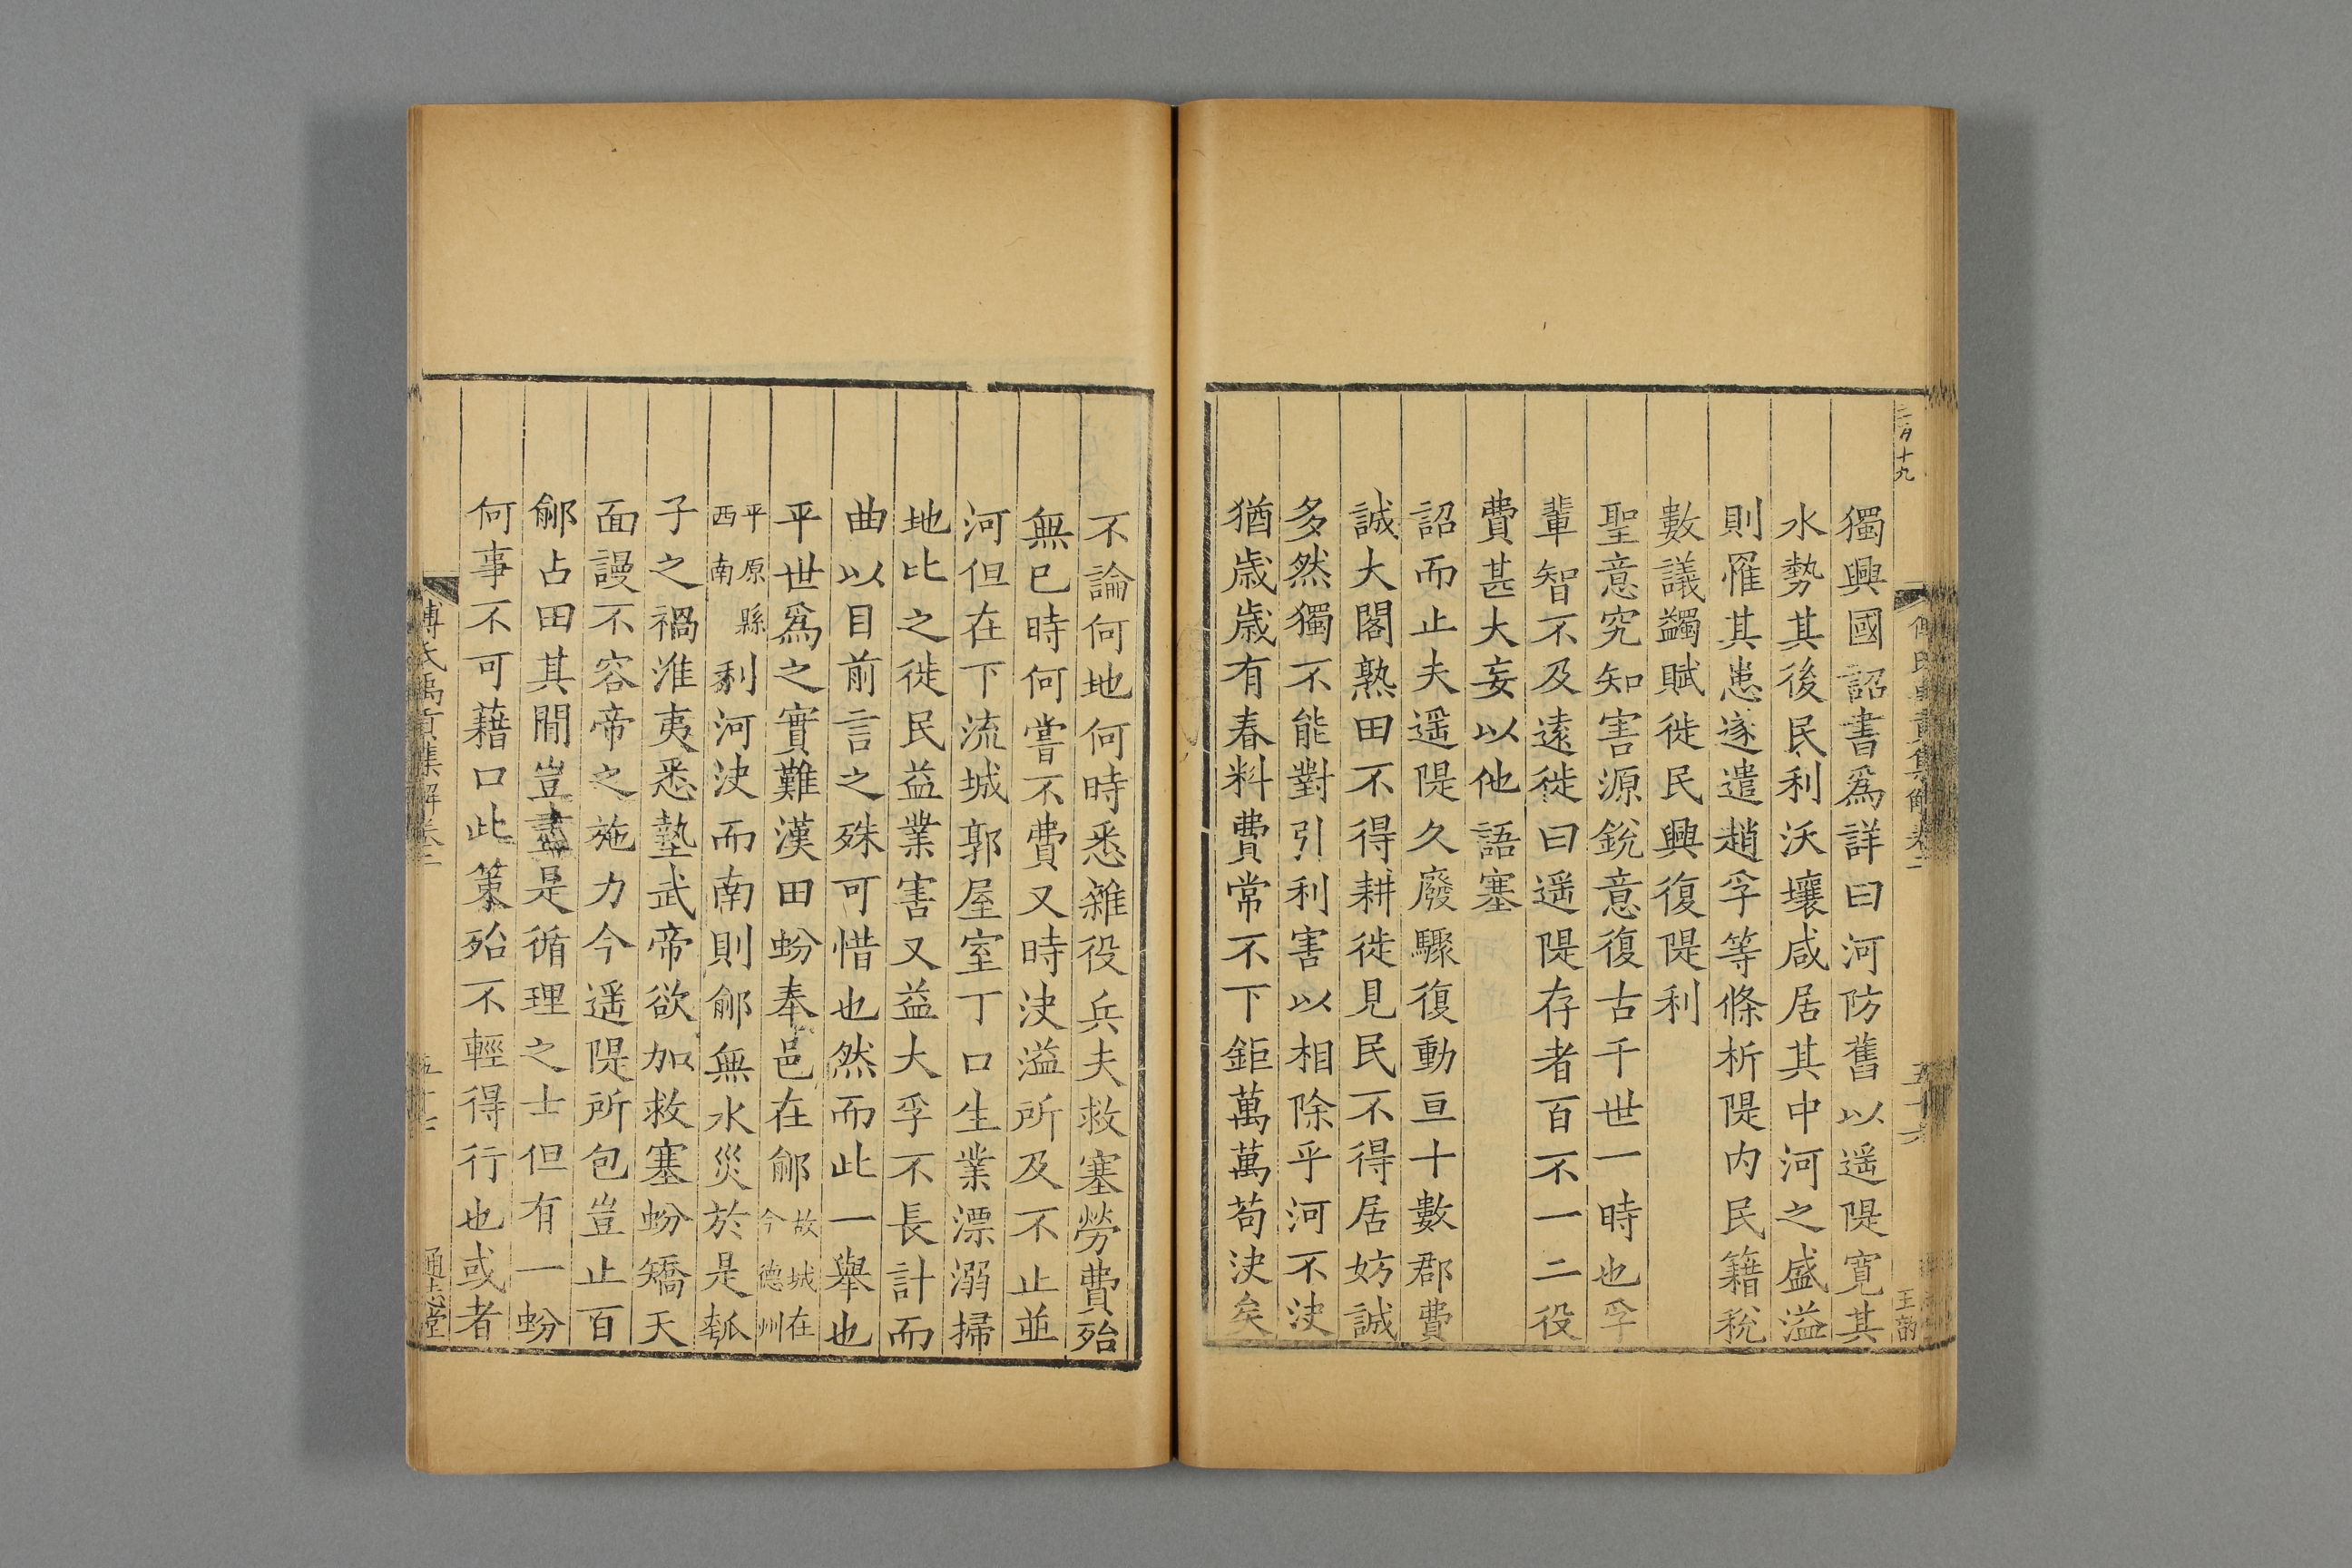 獨興國詔書爲詳曰河防舊以遥隄寛其
水勢其後民利沃壤咸居其中河之盛溢
則罹其患遂遣趙孚等條析隄内民籍税
數議蠲賦徙民興復隄利
聖意究知害源銳意復古千世一時也孚
輩智不及遠徙曰遥隄存者百不一二役
費甚大妄以他語塞
詔而止夫遥隄久廢驟復動亘十數郡費
誠大閣熟田不得耕徙見民不得居妨誠
多然獨不能對引利害以相除乎河不決
猶歳歳有春料費常不下鉅萬萬苟決矣
傅氏禹貢集解卷二
五十六
不論何地何時悉雜役兵夫救塞勞費殆
無已時何嘗不費又時決溢所及不止並
河但在下流城郭屋室丁口生業漂溺掃
地比之徙民益業害又益大孚不長計而
曲以目前言之殊可惜也然而此一舉也
平世爲之實難漢田蚡奉邑在鄃故城在今德州
平原縣西南利河決而南則鄃無水災於是瓠
子之禍淮夷悉墊武帝欲加救塞蚡矯天
面謾不容帝之施力今遥隄所包豈止百
鄃占田其閒豈盡是循理之士但有一蚡
何事不可藉口此策殆不輕得行也或者
傅氏禹貢集解卷二
五十七
通志堂